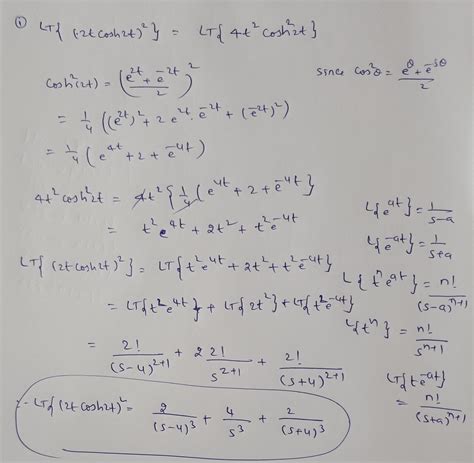 ① LT{(2t cosh2t)²} = LT{4t² cosh²2t}
cosh²(2t) = ((e^2t + e^-2t)/2)²
since cos²θ = (e^θ + e^-sθ)/2
= 1/4 ((e^2t)² + 2 e^2t · e^-2t + (e^-2t)²)
= 1/4 (e^4t + 2 + e^-4t)
4t² cosh²2t = 4t² {1/4 (e^4t + 2 + e^-4t}
= t² e^4t + 2t² + t² e^-4t
L{e^at} = 1/(s-a)
L{e^-at} = 1/(s+a)
LT{(2t cosh2t)²} = LT{t² e^4t + 2t² + t² e^-4t}
L{t^n e^at} = n!/(s-a)^n+1
= LT{t² e^4t} + LT{2t²} + LT{t² e^-4t}
L{t^n} = n!/s^n+1
= 2!/(s-4)^2+1 + 2 2!/s^2+1 + 2!/(s+4)^2+1
LT{t e^-at} = n!/(s+a)^n+1
∴ LT{(2t cosh2t)² = 2/(s-4)³ + 4/s³ + 2/(s+4)³